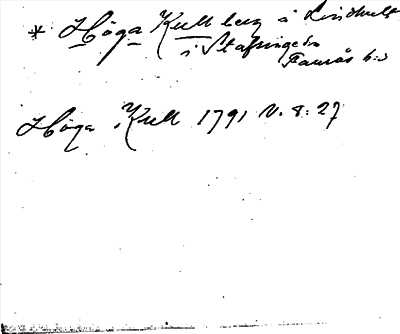 * Höga Kull berg å Lindhult
i Stafsinge sn
Faurås h:d
Höga Kull 1791 N. 8:27